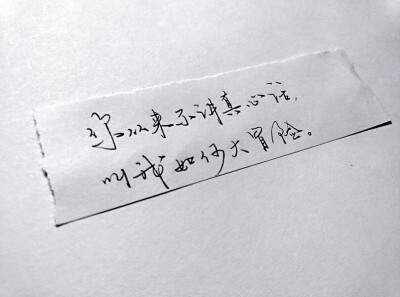 你从来不讲真心话，
叫我如何大冒险。